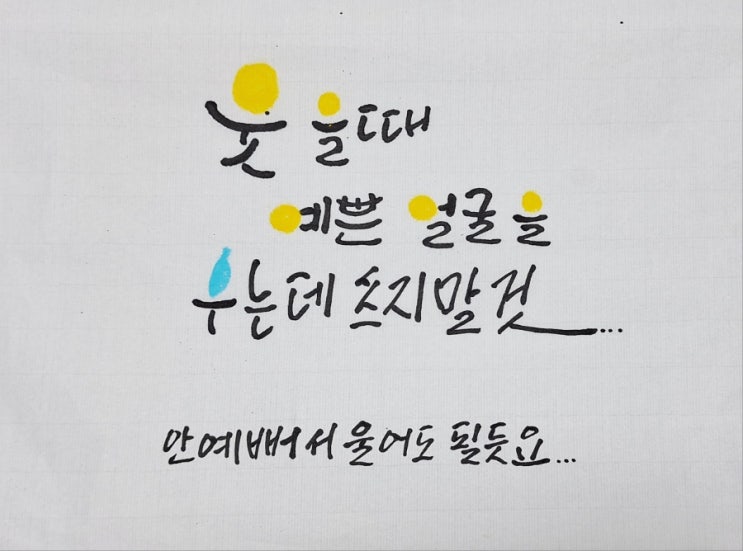 웃을때
예쁜 얼굴을
우는데 쓰지말것...
안예뻐서 울어도 될듯요...